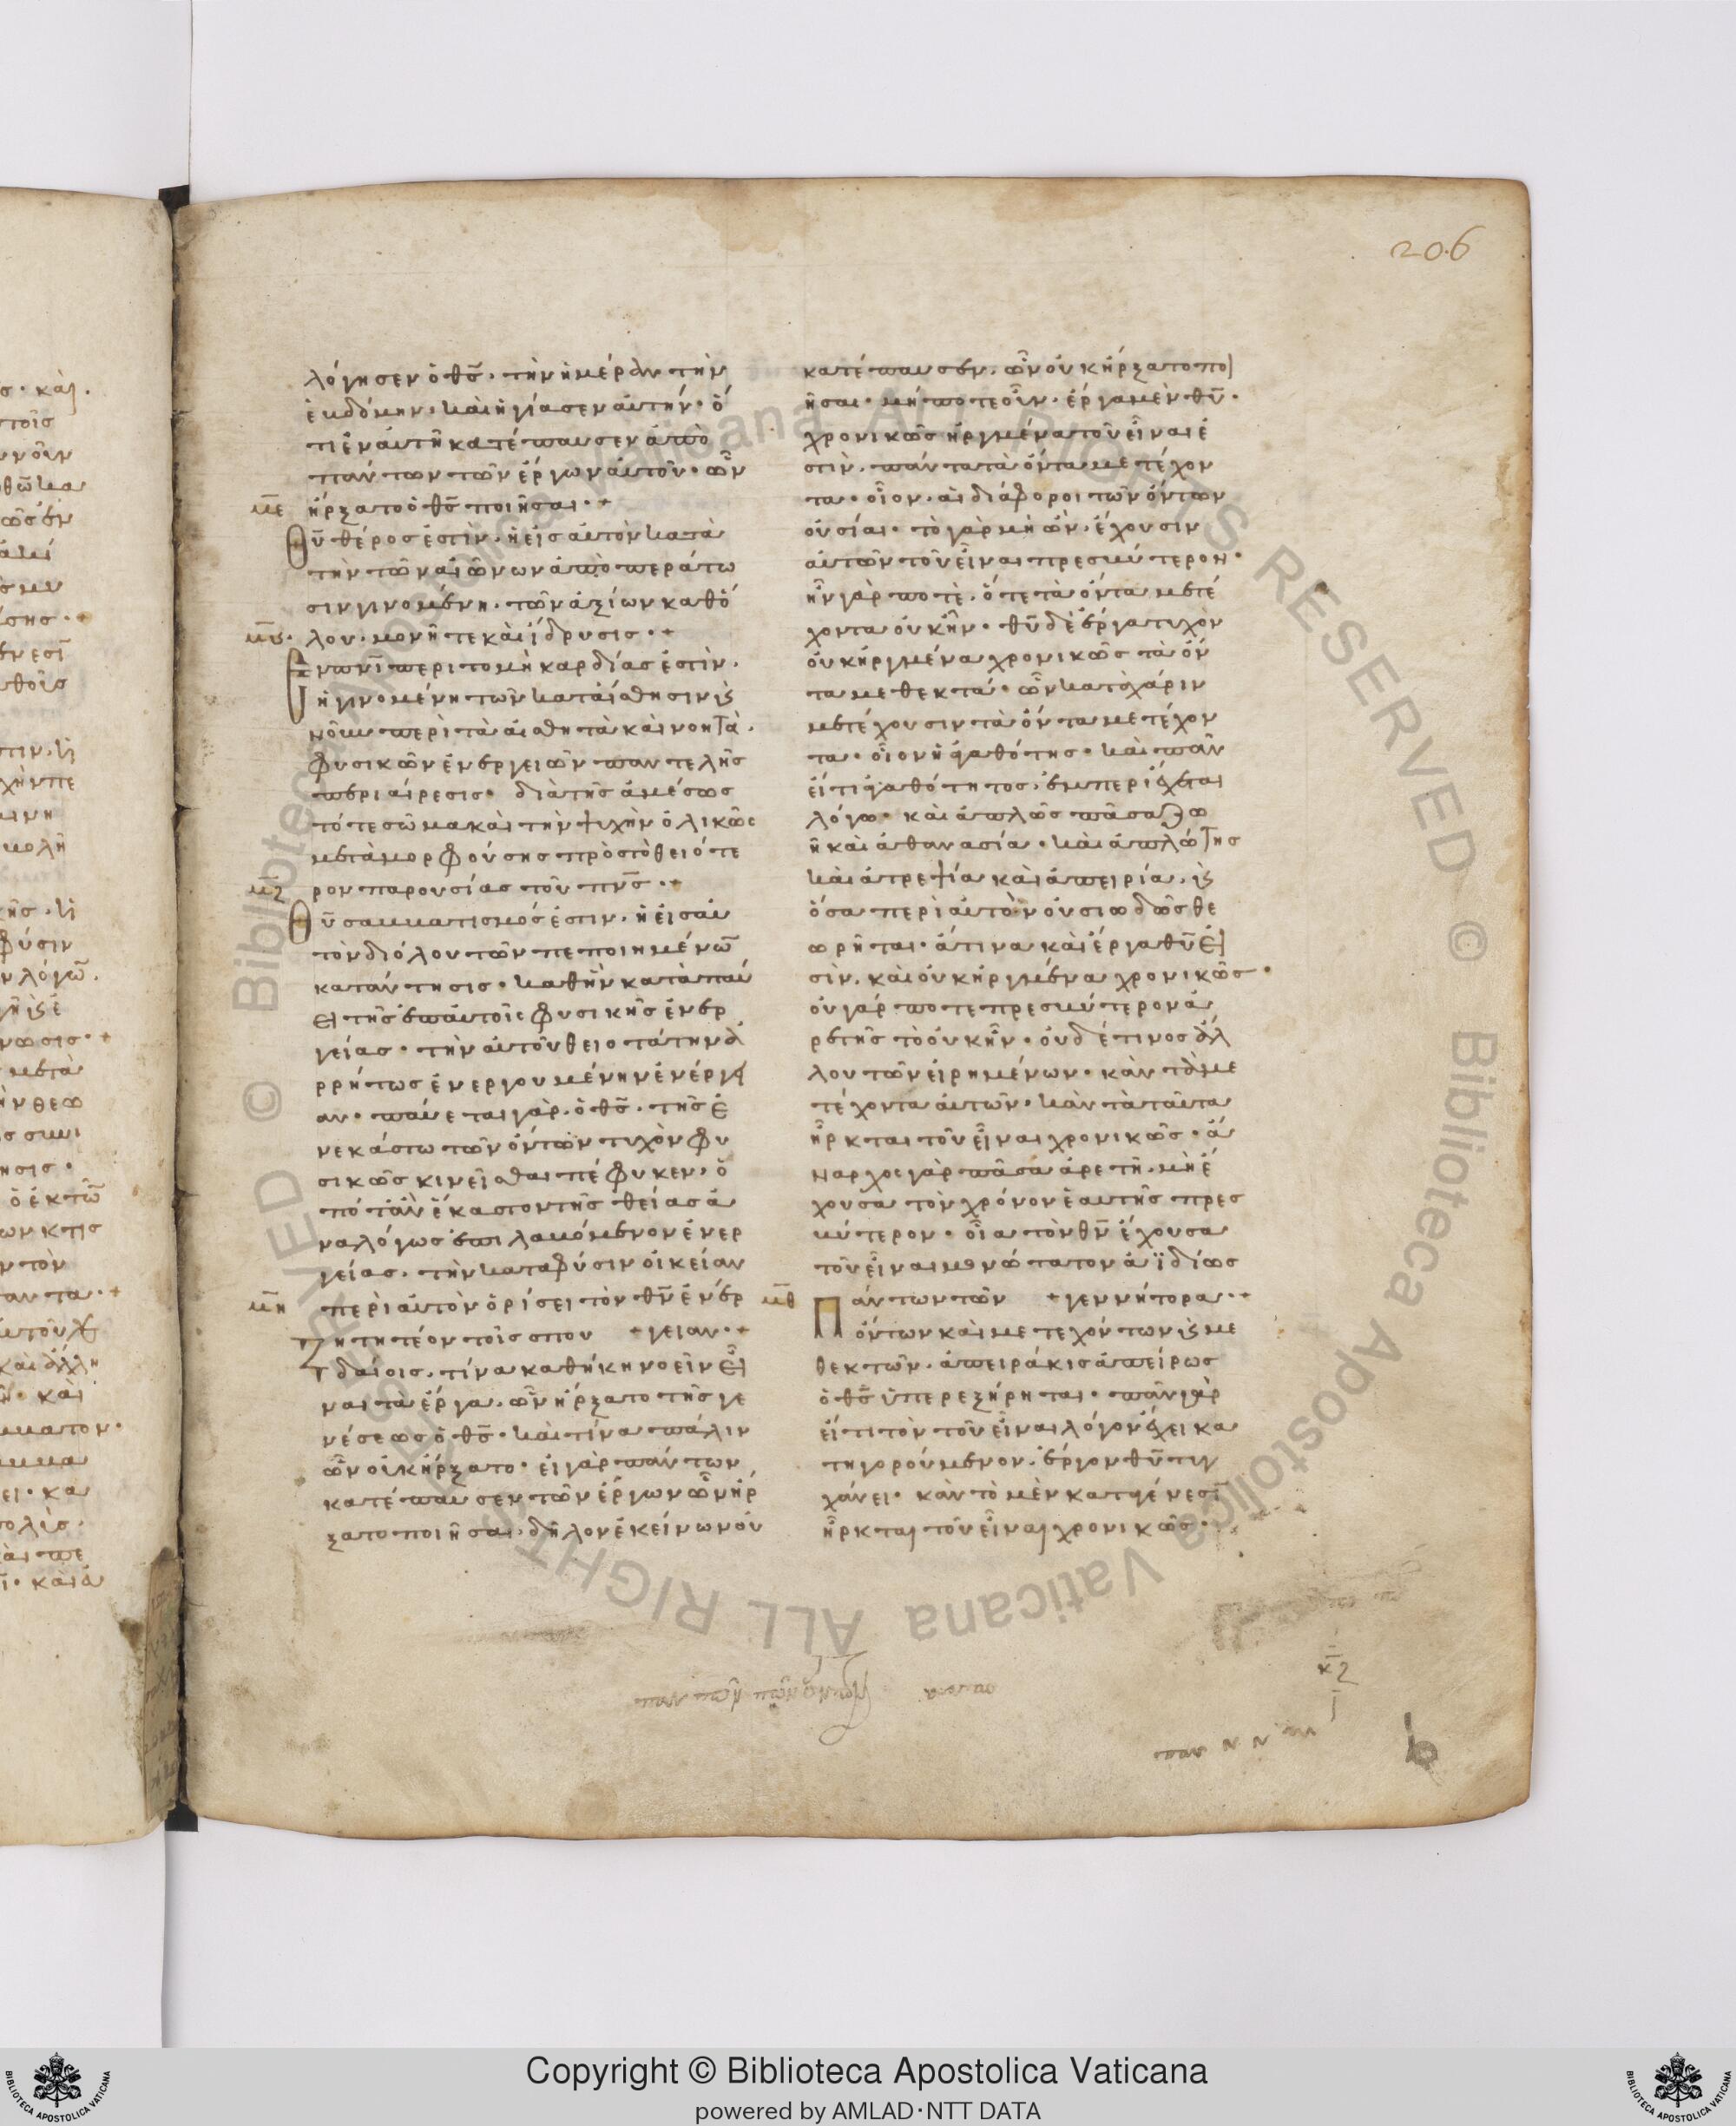 206
λόγησεν ὁ θς̅· τὴν ἡμέραν τὴν
ἑβδόμην· καὶ ἡγίασεν αὐτήν· ὅ
τι ἐν αὐτῆ κατέπαυσεν ἀπὸ
πάντων τῶν ἔργων αὐτοῦ· ὧν
με̅ ἤρξατο ὁ θς̅ ποιῆσαι·+
Θυ̅ θέρος ἐστὶν, ἡ εἰς αὐτὸν κατὰ
τὴν τῶν αἰώνων ἀποπεράτω
σιν γινομένη, τῶν ἀξίων καθό
μϛ̅· λου, μονή τε καὶ ἵδρυσις·+
Ἐν πνι̅ περιτομὴ καρδίας ἐστὶν,
ἡ γινομένη τῶν κατ' αἴσθησιν κ̀
νοῦν περὶ τὰ αἰσθητὰ καὶ νοητὰ,
φυσικῶν ἐνεργειῶν παντελὴς
περιαίρεσις· διὰ τῆς ἀμέσως
τό τε σῶμα καὶ τὴν ψυχὴν ὁλικῶς
μεταμορφούσης πρὸς τὸ θειότε
μζ̅ ρον παρουσίας τοῦ πνς̅·+
Θυ̅ σαββατισμός ἐστιν, ἡ εἰς αὐ
τὸν διόλου τῶν πεποιημένω̅
κατάντησις· καθ' ἣν καταπαύ
ει τῆς ἐπ' αὐτοῖς φυσικῆς ἐνερ
γείας· τὴν αὐτοῦ θειοτάτην ἀ
ρρήτως ἐνεργουμένην ἐνέργει
αν· παύεται γὰρ, ὁ θς̅, τῆς ἐ
ν ἑκάστω τῶν ὄντων τυχὸν φυ
σικῶς κινεῖσθαι πέφυκεν, ὁ
πόταν ἕκαστον τῆς θείας ἀ
ναλόγως ἐπιλαβόμενον ἐνερ
γείας, τὴν κατα φύσιν οἰκείαν
μη̅ περὶ αὐτὸν ὁρίσει τὸν θν̅ ἐνέρ
+γειαν·+
Ζητητέον τοῖς σπου
δαίοις, τίνα καθήκη νοεῖν εἶ
ναι τὰ ἔργα, ὧν ἤρξατο τῆς γε
νέσεως ὁ θς̅· καὶ τίνα πάλιν
ὧν οὐκ ἤρξατο· εἰ γὰρ πάντων
κατέπαυσεν τῶν ἔργων ὧν ἤρ
ξατο ποιῆσαι, δῆλον ἐκείνων οὐ
κατέπαυσεν, ὧν οὐκ ἤρξατο ποι
ῆσαι· μήποτε οὖν, ἔργα μὲν θυ̅·
χρονικῶς ἠργμένα τοῦ εἶναι ἐ
στὶν, πάντα τὰ ὄντα μετέχον
τα· οἷον, αἱ διάφοροι τῶν ὄντων
οὐσίαι· τὸ γὰρ μὴ ὢν, ἔχουσιν
αὐτῶν τοῦ εἶναι πρεσβύτερον·
ἦν γάρ ποτὲ, ὅτε τὰ ὄντα μετέ
χοντα οὐκ ἦν· θυ̅ δὲ ἔργα τυχὸν
οὐκ ἠργμένα χρονικῶς τὰ ὄν
τα μεθεκτά· ὧν κατὰ χάριν
μετέχουσιν τὰ ὄντα μετέχον
τα· οἷον ἡ ἀγαθότης· καὶ πᾶν
εἴ τι ἀγαθότητος, ἐμπεριέχεται
λόγω· καὶ ἁπλῶς πᾶσα ζω
ὴ καὶ ἀθανασία· καὶ ἁπλότης
καὶ ἀτρεψία καὶ ἀπειρία, κ̀
ὅσα περὶ αὐτὸν οὐσιωδῶς θε
ωρῆται· ἅτινα καὶ ἔργα θυ̅ εἰ
σὶν, καὶ οὐκ ἠργμένα χρονικῶς·
οὐ γάρ ποτε πρεσβύτερον ἀ
ρετῆς τὸ οὐκ ἦν· οὐδέ τινος ἄλ
λου τῶν εἰρημένων· κἂν τὰ με
τέχοντα αὐτῶν· κὰν τὰ ταῦτα
ἦρκται τοῦ εἶναι χρονικῶς· ἄ
ναρχος γὰρ πᾶσα ἀρετὴ, μὴ ἔ
χουσα τὸν χρόνον ἑαυτῆς πρεσ
βύτερον· οἷα τὸν θν̅ ἔχουσα
τοῦ εἶναι μονώτατον ἀϊδίως
+γεννήτορα·+
μθ̅ Πάντων τῶν
ὄντων καὶ μετεχόντων κ̀ με
θεκτῶν, ἀπειράκις ἀπείρως
ὁ θς̅ ὑπερεξήρηται· πᾶν γὰρ
εἴ τι τὸν τοῦ εἶναι λόγον ἔχει κα
τηγορούμενον, ἔργον θυ̅ τυγ
χάνει· κἂν τὸ μὲν κατὰ γένεσι̅
ἦρκται τοῦ εἶναι χρονικῶς·
κζ̅
b
Copyright © Biblioteca Apostolica Vaticana
powered by AMLAD·NTT DATA